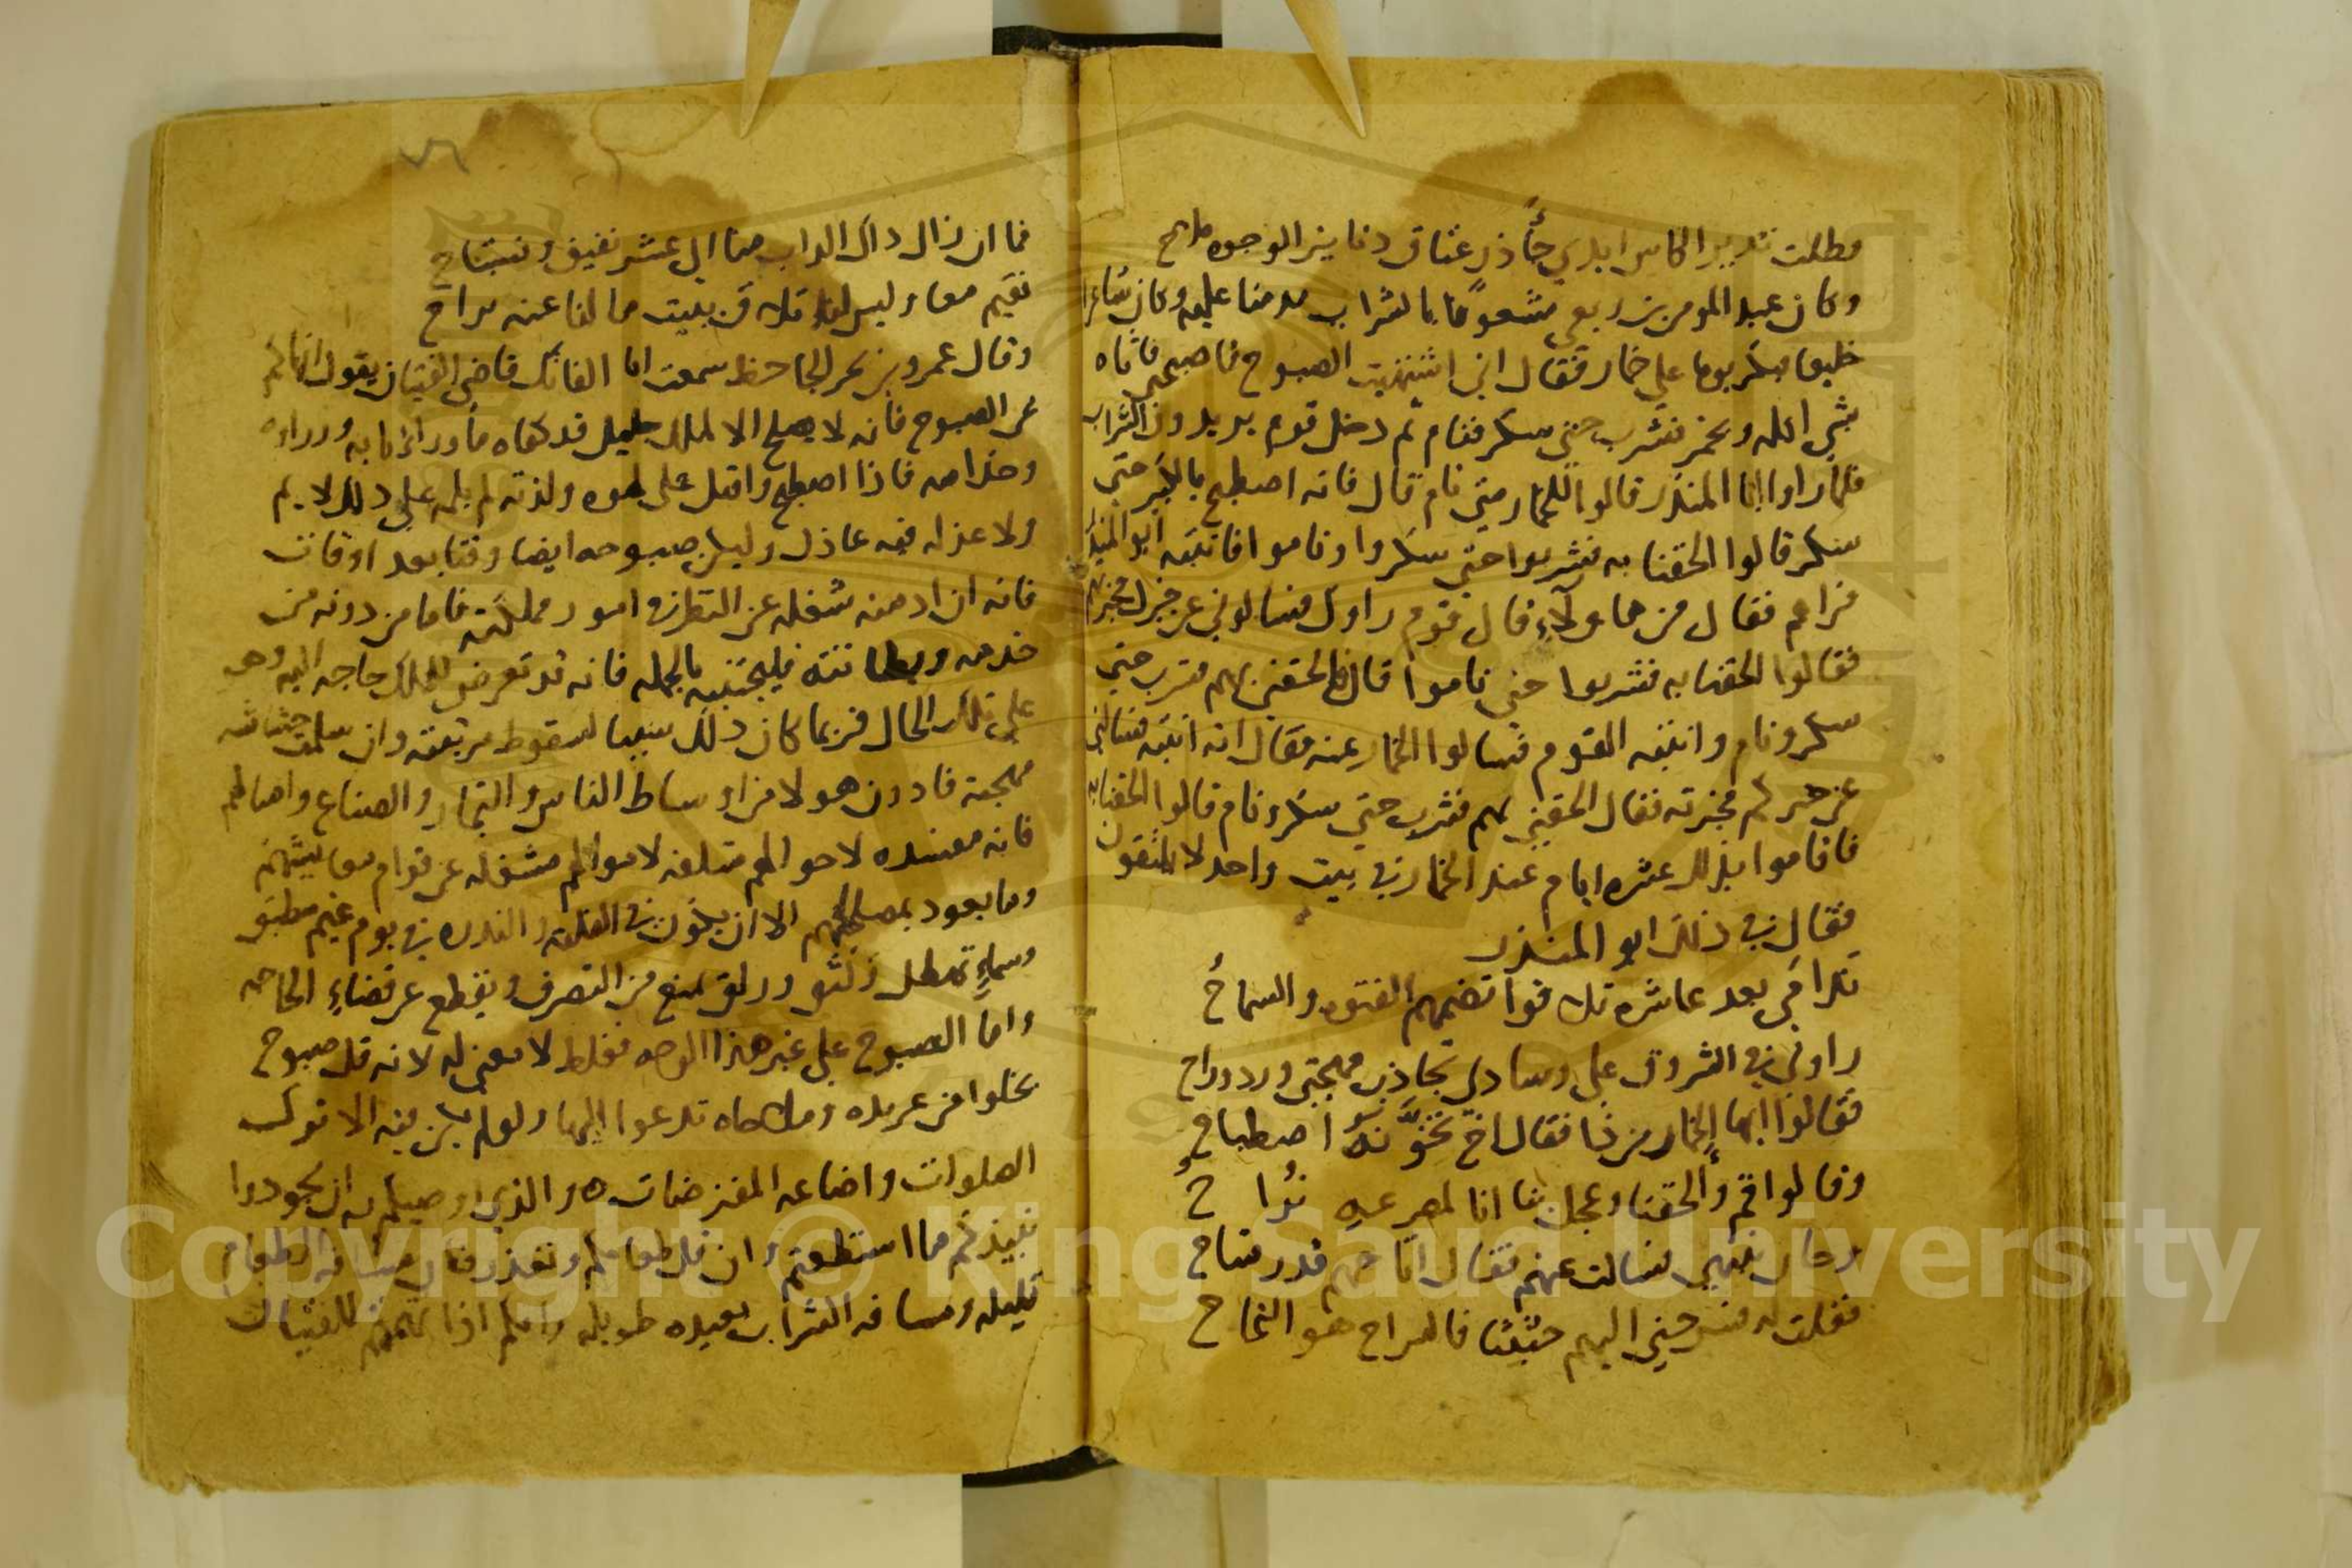 وظلت تدير الكاس ايدي جآذر عتاق دنانير الوجوه ملاح
وكان عبد المومن بن ربعي مشعوفا بالشراب مدمنا عليه وكان شاعرا
خليعا فبكر يوما على خمار فقال اني اشتهيت الصبوح فاصبحني فاتاه
بشي اكله وبخمر فشرب حتى سكر فنام ثم دخل قوم يريدون الشراب
فلما راوا ابا المنذر قالوا للخمار متى نام قال فانه اصطبح بالكبير حتى
سكر قالوا الحقنا به فشربوا حتى سكروا وناموا فانتبه ابو المنذر
فراهم فقال من هاولاء قال قوم راوك فسالوني عن خبرك فخبرتهم
فقالوا الحقنا به فشربوا حتى ناموا قال فالحقني بهم فشرب حتى
سكر ونام وانتبه القوم فسالوا الخمار عنه فقال انه انتبه فسالني
عن خبركم فخبرته فقال الحقني بهم فشرب حتى سكر ونام قالوا الحقنا به
فاقاموا بذلك عشره ايام عند الخمار في بيت واحد لا يلتقون
فقال في ذلك ابو المنذر
ندامى بعد عاشره تلاقوا تضمهم الفتوه والسماح
راوني في الشروق على وسادي تجاذب مهجتي ورد وراح
فقالوا ايها الخمار من ذا فقال اخ تخونه اصطباح
وقالوا قم والحقنا وعجل بنا انا لمصرعه نراح
وحان تنبهي فسالت عنهم فقال اتاحهم قدر متاح
فقلت له فسرحني اليهم حثيثا فالسراح هو النجاح
٧٦
فما ان زال داك الداب منا الى عشر نفيق ونستباح
نقيم معا وليس لنا تلاق ببيت ما لنا عنه براح
وقال عمرو بن بحر الجاحظ سمعت ابا الفاتك قاضي الفتيان يقول انهاكم
عن الصبوح فانه لا يصلح الا لملك جليل قد كفاه ماوراه نابه ووزراوه
وخدامه فاذا اصطبح واقبل على لهوه ولذته لم يلمه على ذلك لايم
ولا عذله فيه عاذل وليكن صبوحه ايضا وقتا بعد اوقات
فانه ان ادمنه شغله عن النظر في امور مملكته فاما من دونه من
خدمه وبطانته فليجتنبه بالجمله فانه قد تعرض للملك حاجه اليه وهو
على تلك الحال فربما كان ذلك سببا لسقوط مرتبته وان سلمت حشاشه
مهجته فادون هولا من اوساط الناس والتجار والصناع وامثالهم
فانه مفسده لاحوالهم متلفه لاموالهم مشغله عن قوام معايشهم
وما يعود بمصلحتهم الا ان يكون في الفلته والندره في يوم غيم مطبق
وسماء تهطل ولثق وزلق يمنع من التصرف ويقطع عن قضاء الحاجه
واما الصبوح على غير هذا الوجه فغلط لا معنى له لانه قل صبوح
يخلوا من عربده و تدعوا اليها ولو لم يكن فيه الا ترك
الصلوات واضاعه المفترضات والذي اوصيكم به ان تجودوا
نبيذكم ما استطعتم وان قل طعامكم وتعذر فان مسافه الطعام
قليله ومسافه الشراب بعيده طويله واياكم اذا للفتيان
Copyright © King Saud University